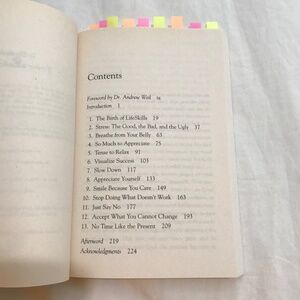 Contents
Foreword by Dr. Andrew Weil ix
Introduction 1
1. The Birth of LifeSkills 19
2. Stress: The Good, the Bad, and the Ugly 37
3. Breathe from Your Belly 63
4. So Much to Appreciate 75
5. Tense to Relax 91
6. Visualize Success 103
7. Slow Down 117
8. Appreciate Yourself 133
9. Smile Because You Care 149
10. Stop Doing What Doesn't Work 163
11. Just Say No 177
12. Accept What You Cannot Change 193
13. No Time Like the Present 209
Afterword 219
Acknowledgments 224